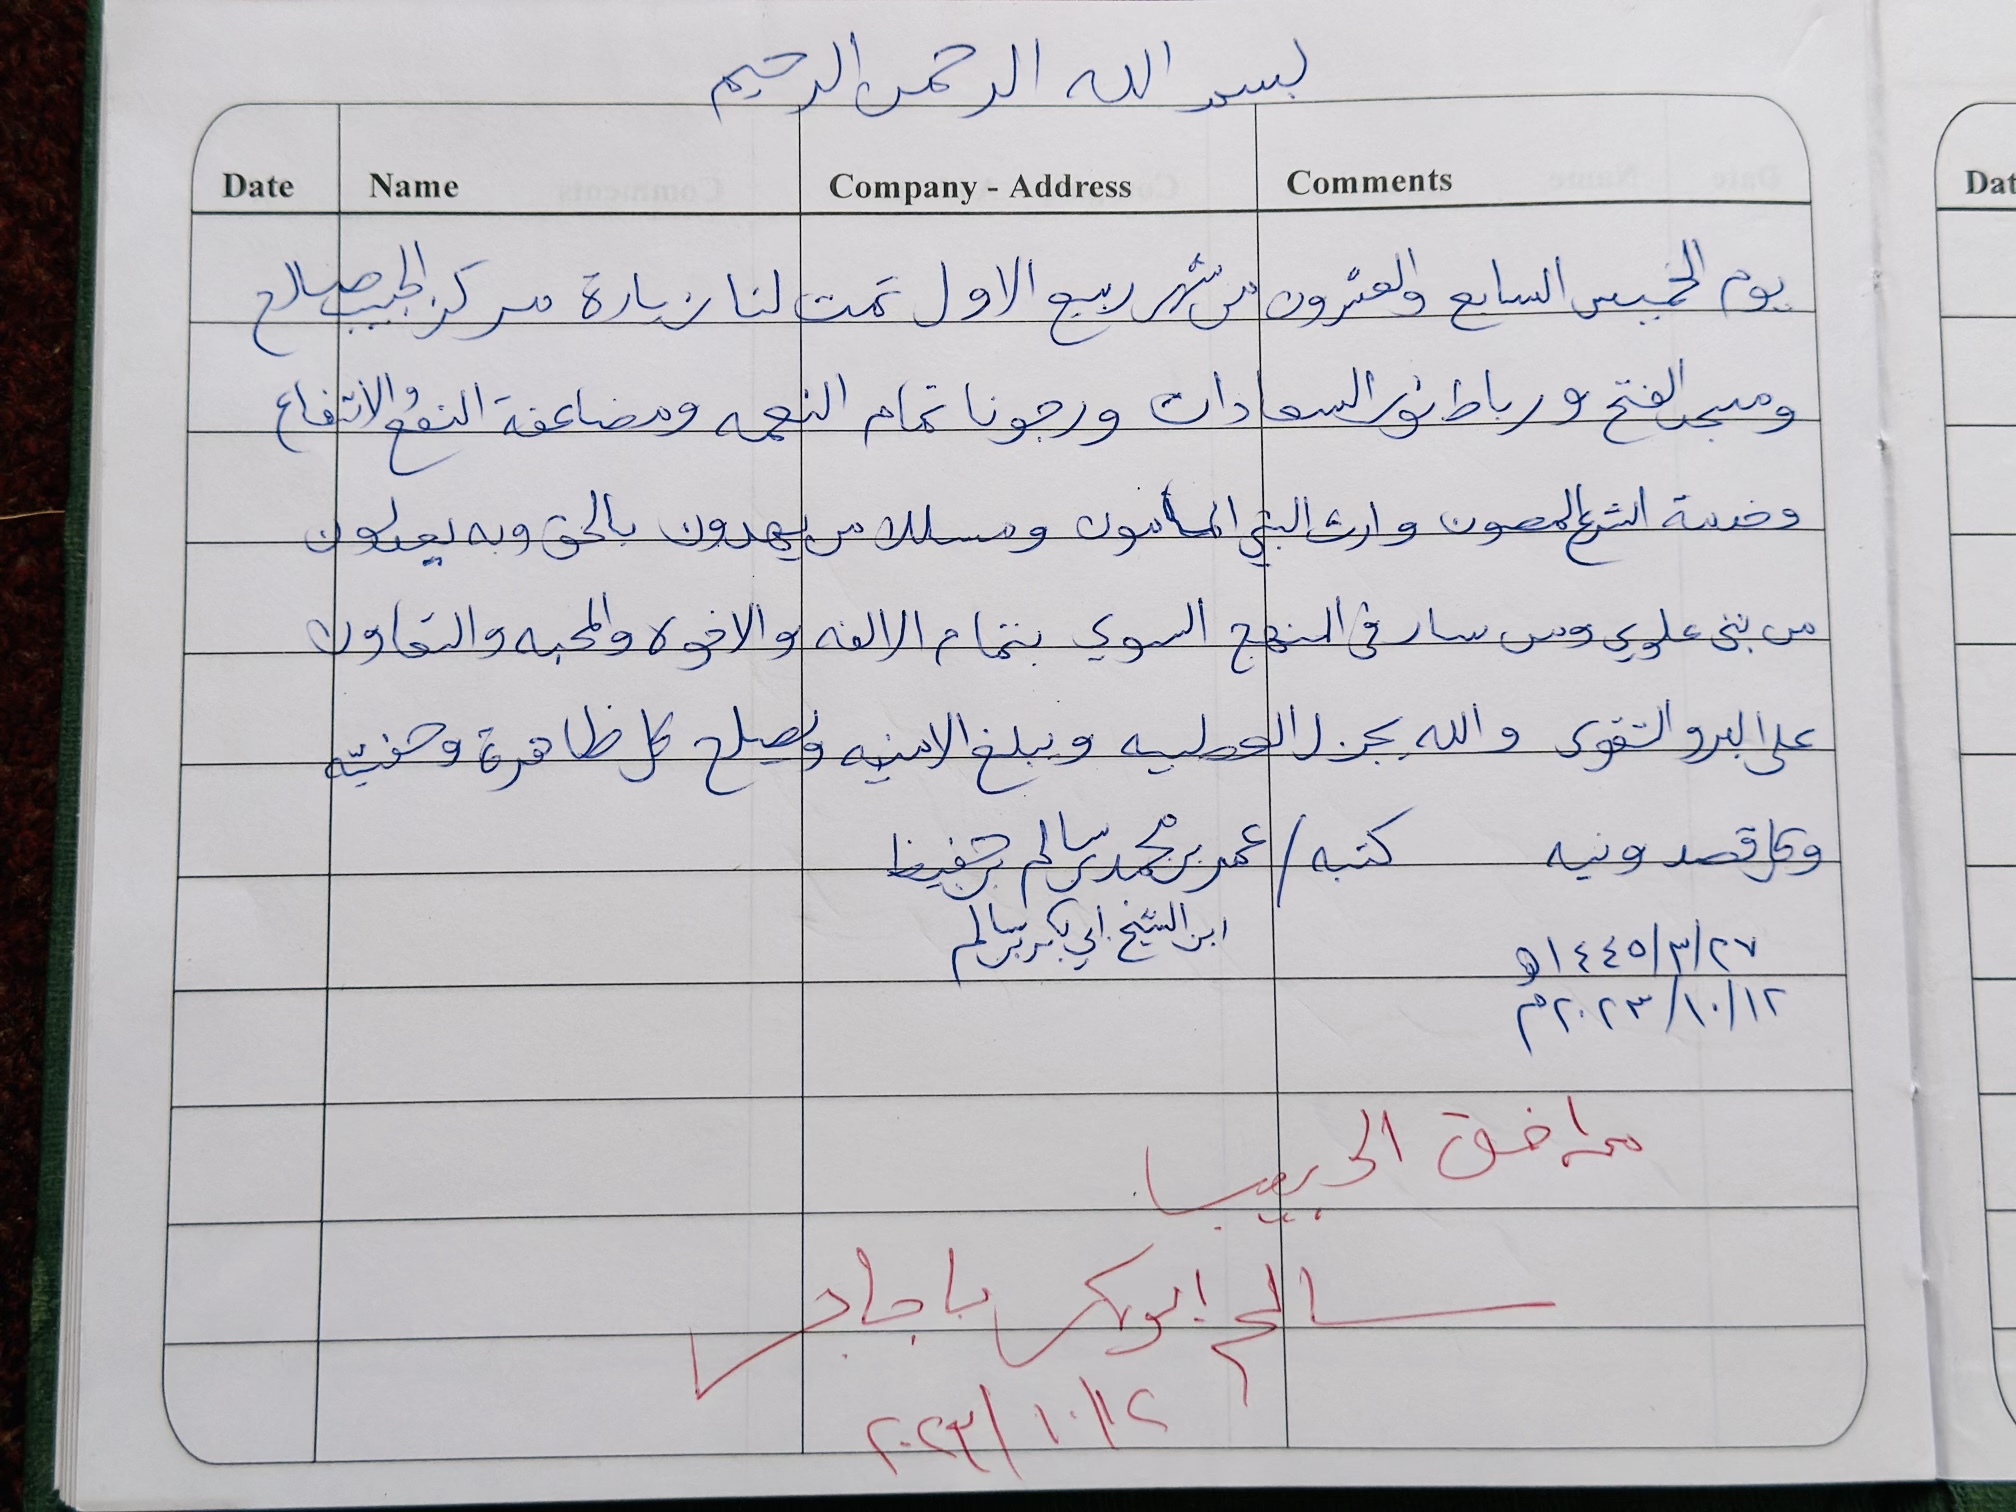 بسم الله الرحمن الرحيم
Date Name Company - Address Comments Dat
يوم الخميس السابع والعشرون من شهر ربيع الاول تمت لنا زيارة مركز الحبيب صالح
ومسجد الفتح ورباط نور السعادات ورجونا تمام النعمه ومضاعفة النفع والانتفاع
وخدمة الشرع المصون وارث النبي المأمون ومسلك من يهدون بالحق وبه يعدلون
من بني علوي ومن سار في المنهج السوي بتمام الالفه والاخوه والمحبه والتعاون
على البر والتقوى والله يجزل العطيه ويبلغ الامنيه ويصلح كل ظاهرة وخفيّه
وكل قصد ونيه كتبه / عمر بن محمد بن سالم بن حفيظ
ابن الشيخ ابي بكر بن سالم
٢٧/٣/١٤٤٥ه
١٢/١٠/٢٠٢٣م
مرافق الحبيب
سالم ابوبكر باجابر
١٢/١٠/٢٠٢٣